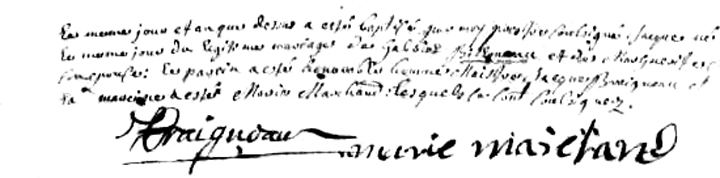 Le mesme jour et an que dessus a esté baptisé par moy prestre soubsigné Jacques né
le mesme jour du legitime mariage de et de Marguerite
son epouse: Le parein a esté honorable homme Maistre Jacques Braigneau et
la mareine a esté Marie Marchand lesquels se sont soubsignez
Braigneau marie marchand